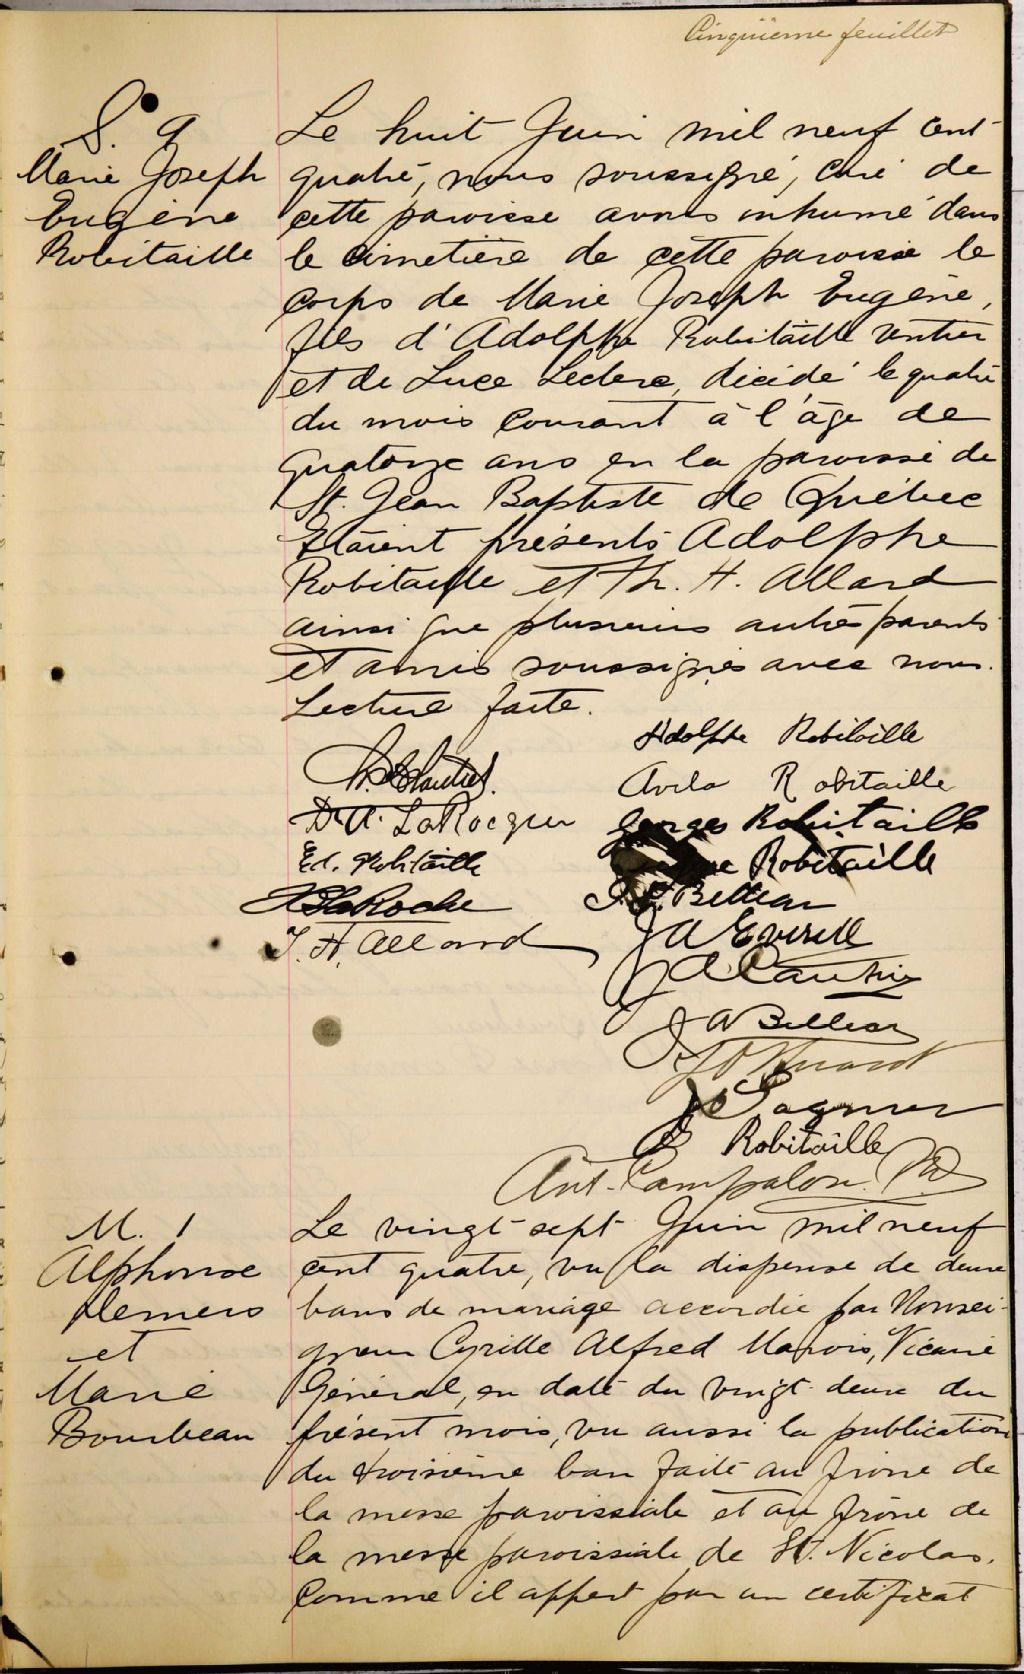 Cinquième feuillet
S. 9
Marie Joseph
Eugène
Robitaille
Le huit Juin mil neuf cent
quatre, nous soussigné, curé de
cette paroisse avons inhumé dans
le cimetière de cette paroisse le
corps de Marie Joseph Eugène,
fils d'Adolphe Robitaille rentier
et de Luce Leclerc, décédé le quatre
du mois courant à l'âge de
quatorze ans en la paroisse de
St. Jean Baptiste de Québec
Etaient présents Adolphe
Robitaille et Th. H. Allard
ainsi que plusieurs autres parents
et amis soussignés avec nous.
Lecture faite.
Adolphe Robitaille
Avila Robitaille
D. A. LaRocque
Georges Robitaille
Ed. Robitaille
Robitaille
LaRoche
Belleau
T. H. Allard
J A Everell
J A Cantin
J A Belleau
Huard
J Gagnon
Robitaille
Ant. Campalon. Ptr
M. 1
Alphonse
Demers
et
Marie
Bourbeau
Le vingt-sept Juin mil neuf
cent quatre, vu la dispense de deux
bans de mariage accordée par Monsei-
gneur Cyrille Alfred Marois, Vicaire
Général, en date du vingt-deux du
présent mois, vu aussi la publication
du troisième ban faite au prône de
la messe paroissiale et au prône de
la messe paroissiale de St. Nicolas.
Comme il appert par un certificat